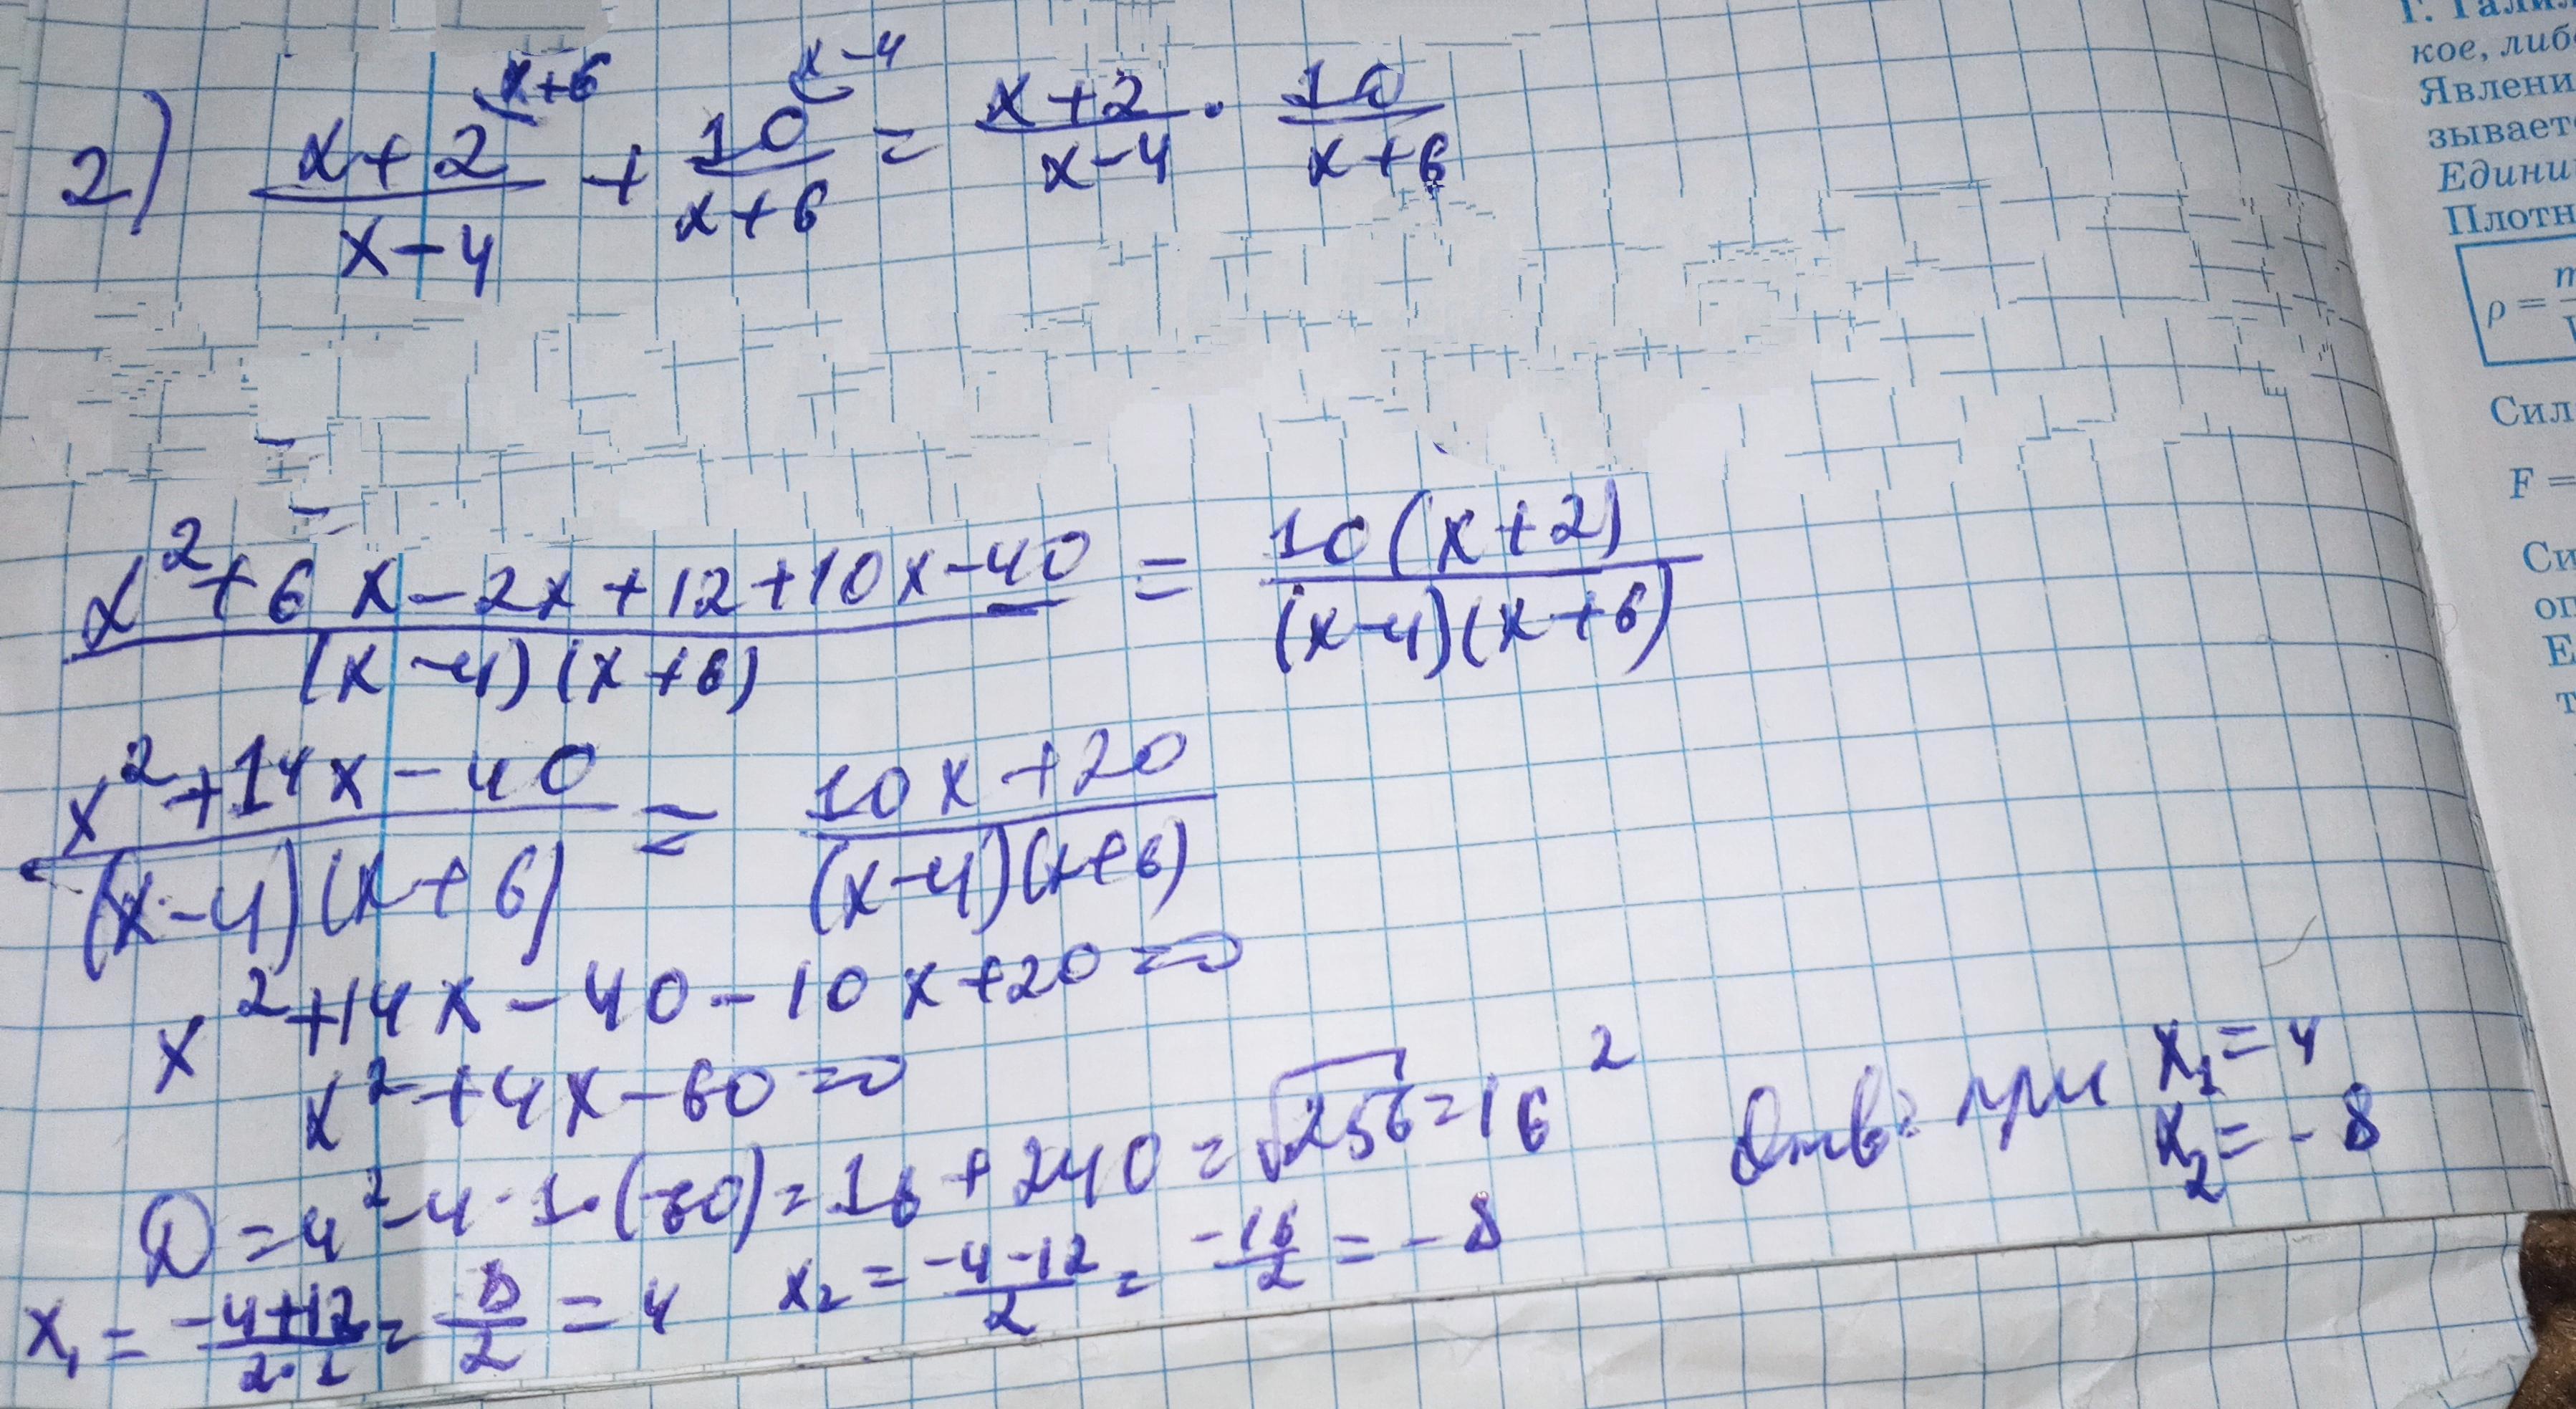 2) \frac{x+2}{x-4}^{x+6} + \frac{10}{x+6}^{x-4} = \frac{x+2}{x-4} \cdot \frac{10}{x+6}
\frac{x^2+6x-2x+12+10x-40}{(x-4)(x+6)} = \frac{10(x+2)}{(x-4)(x+6)}
\frac{x^2+14x-40}{(x-4)(x+6)} = \frac{10x+20}{(x-4)(x+6)}
x^2+14x-40-10x+20=0
x^2+4x-60=0
D=4^2-4\cdot1\cdot(-60)=16+240=\sqrt{256}=16^2
x_1=\frac{-4+12}{2\cdot1}=\frac{8}{2}=4 x_2=\frac{-4-12}{2}=\frac{-16}{2}=-8
Отв: при x_1=4
x_2=-8
кое, либ
Явлени
зывает
Едини
Плотн
ρ = m
Сил
F =
Си
оп
Е
т